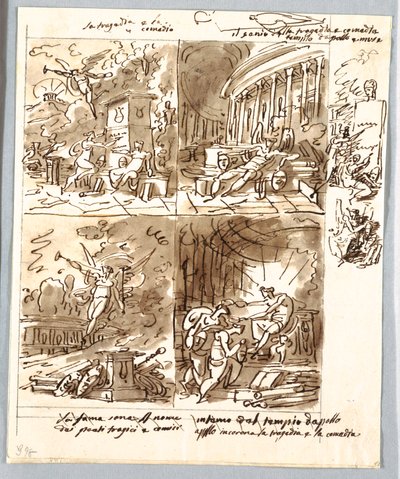 la tragedia e la
comedia
il genio della tragedia e comedia
tempio d'apollo e muse
La fama sona il nome
dei poeti tragici e comici
interno del tempio d'apollo
apollo incorona la tragedia e la comedia